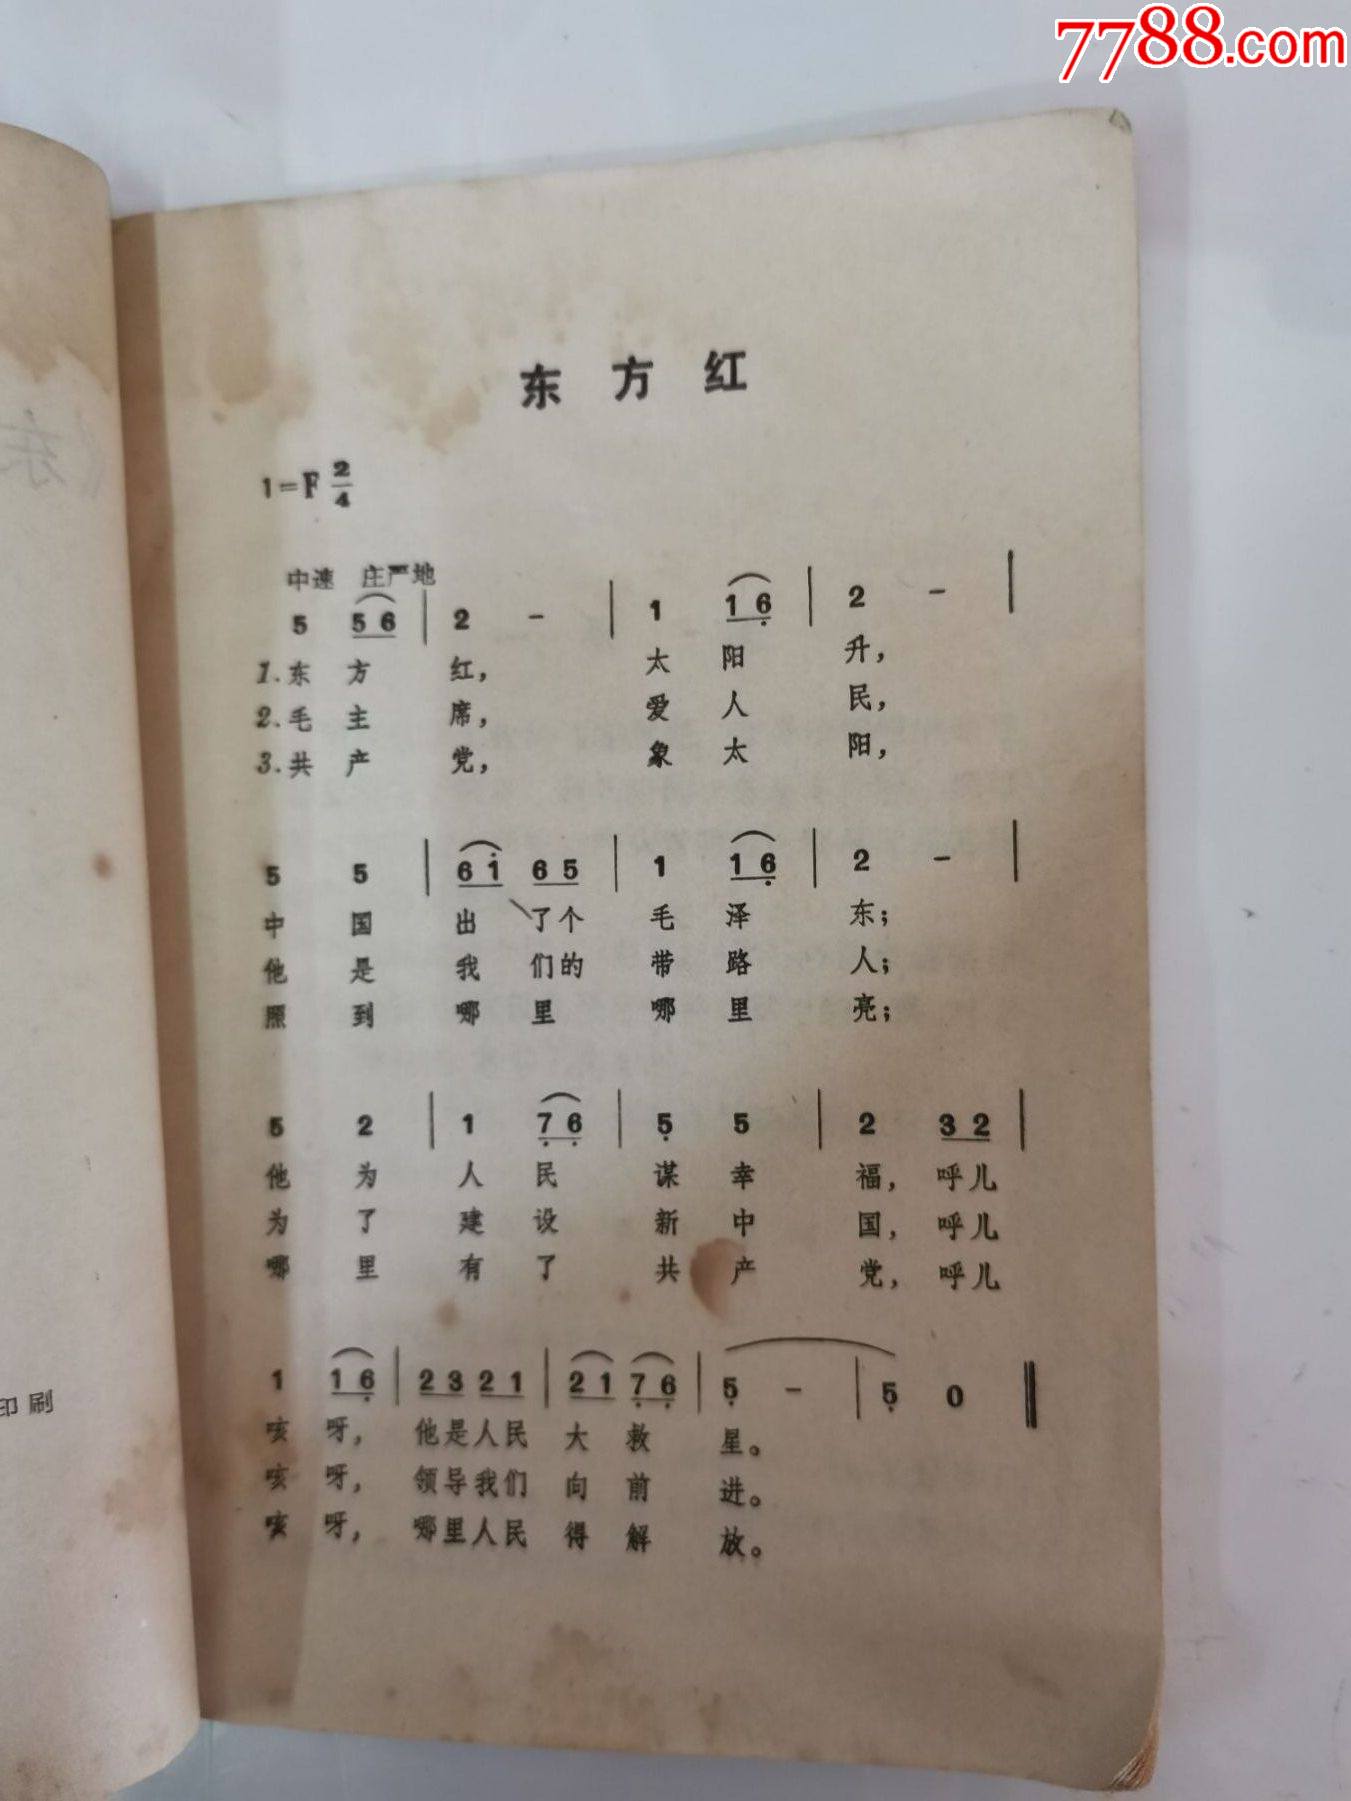 7788.com
东方红
1=F 2/4
中速 庄严地
5 5 6 | 2 - | 1 1 6̣ | 2 - |
1.东方红， 太阳升，
2.毛主席， 爱人民，
3.共产党， 象太阳，
5 5 | 6 1̇ 6 5 | 1 1 6̣ | 2 - |
中国出了个毛泽东；
他是我们的带路人；
照到哪里哪里亮；
5 2 | 1 7̣ 6̣ | 5̣ 5 | 2 3 2 |
他为人民谋幸福，呼儿
为了建设新中国，呼儿
哪里有了共产党，呼儿
1 1 6̣ | 2 3 2 1 | 2 1 7̣ 6̣ | 5̣ - | 5̣ 0 ‖
咳呀，他是人民大救星。
咳呀，领导我们向前进。
咳呀，哪里人民得解放。
印刷